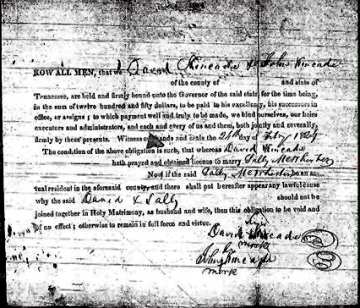 KOW ALL MEN, that we David Kincade & John Kincade
of the county of and state of
Tennessee, are held and firmly bound unto the Governor of the said state for the time being,
in the sum of twelve hundred and fifty dollars, to be paid to his excellency, his successors in
office, or assigns; to which payment well and truly to be made, we bind ourselves, our heirs
executors and administrators, and each and every of us and them, both jointly and severally,
firmly by these presents. Witness our hands and seals the day of
The condition of the above obligation is such, that whereas David Kincade
hath prayed and obtained license to marry Sally
Now if the said Sally be an ac-
tual resident in the aforesaid county, and there shall not hereafter appear any lawful cause
why the said David & Sally should not be
joined together in Holy Matrimony, as husband and wife, then this obligation to be void and
of no effect; otherwise to remain in full force and virtue.
David Kincade
mark
John Kincade
mark